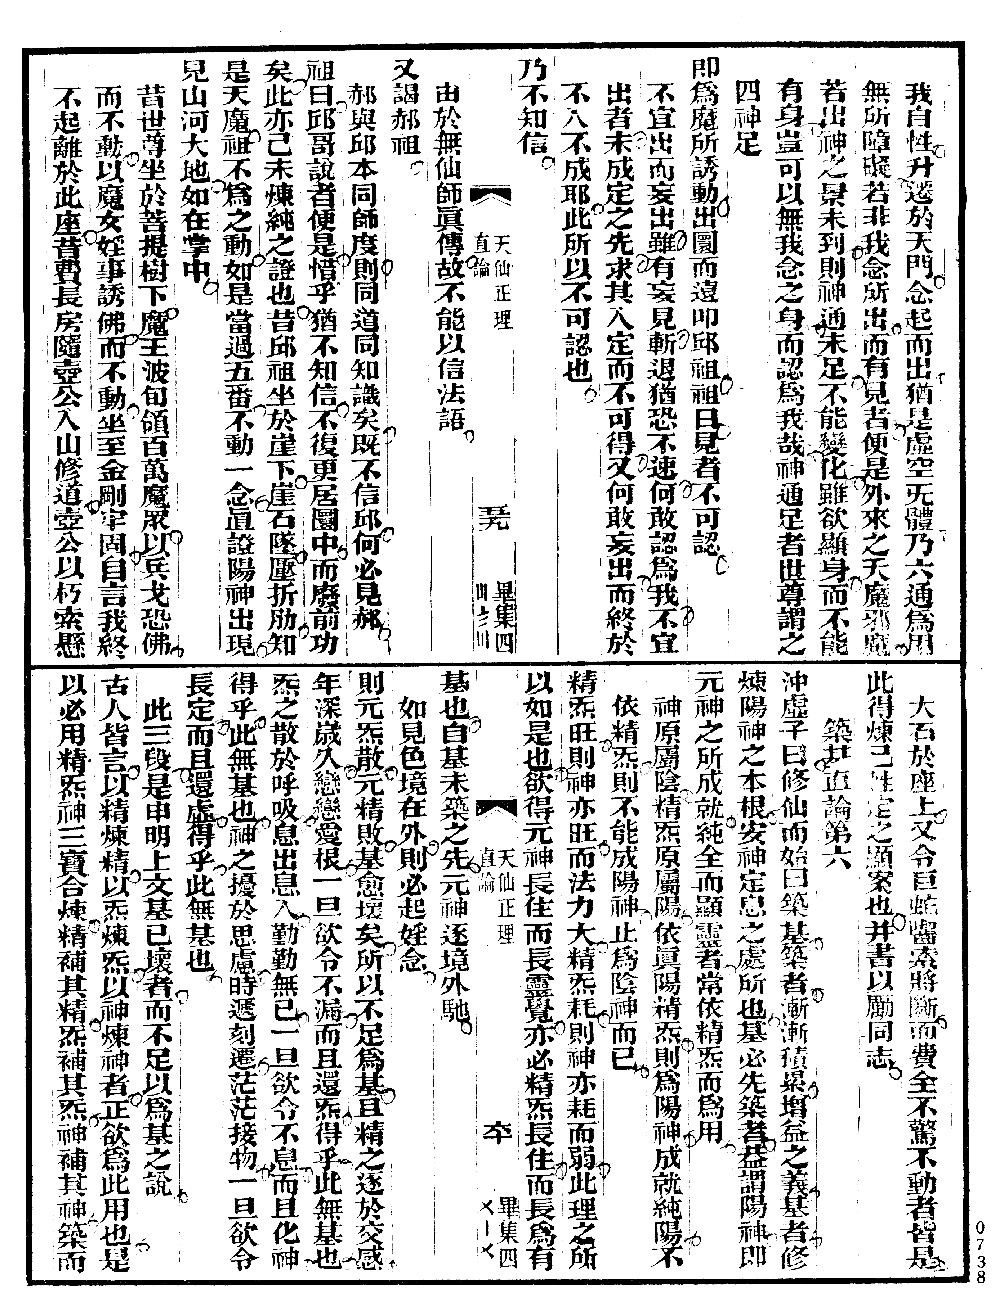 我自性升遷於天門念起而出猶是虛空无體乃六通爲用
無所障礙若非我念所出而有見者便是外來之天魔邪魔
若出神之景未到則神通未足不能變化雖欲顯身而不能
有身豈可以無我念之身而認爲我哉神通足者世尊謂之
四神足
即爲魔所誘動出圜而遠叩邱祖祖曰見者不可認
不宜出而妄出雖有妄見斬退猶恐不速何敢認爲我不宜
出者未成定之先求其入定而不可得又何敢妄出而終於
不入不成耶此所以不可認也
乃不知信
天仙正理
直論
畢集四
由於無仙師眞傳故不能以信法語
又謁郝祖
郝與邱本同師度則同道同知識矣既不信邱何必見郝
祖曰邱哥說者便是惜乎猶不知信不復更居圜中而廢前功
矣此亦己未煉純之證也昔邱祖坐於崖下崖石墜壓折肋知
是天魔祖不爲之動如是當過五番不動一念眞證陽神出現
見山河大地如在掌中
昔世尊坐於菩提樹下魔王波旬領百萬魔眾以兵戈恐佛
而不動以魔女婬事誘佛而不動坐至金剛牢固自言我終
不起離於此座昔費長房隨壺公入山修道壺公以朽索懸
大石於座上又令巨蛇齧索將斷而費全不驚不動者皆是
此得煉己性定之顯案也并書以勵同志
築基直論第六
沖虛子曰修仙而始曰築基築者漸漸積累增益之義基者修
煉陽神之本根安神定息之處所也基必先築者益謂陽神即
元神之所成就純全而顯靈者常依精炁而爲用
神原屬陰精炁原屬陽依眞陽精炁則爲陽神成就純陽不
依精炁則不能成陽神止爲陰神而已
精炁旺則神亦旺而法力大精炁耗則神亦耗而弱此理之所
以如是也欲得元神長住而長靈覺亦必精炁長住而長爲有
天仙正理
直論
畢集四
基也自基未築之先元神逐境外馳
如見色境在外則必起婬念
則元炁散元精敗基愈壞矣所以不足爲基且精之逐於交感
年深歲久戀戀愛根一旦欲令不漏而且還炁得乎此無基也
炁之散於呼吸息出息入勤勤無已一旦欲令不息而且化神
得乎此無基也神之擾於思慮時遞刻遷茫茫接物一旦欲令
長定而且還虛得乎此無基也
此三段是申明上文基已壞者而不足以爲基之說
古人皆言以精煉精以炁煉炁以神煉神者正欲爲此用也是
以必用精炁神三寶合煉精補其精炁補其炁神補其神築而
0738